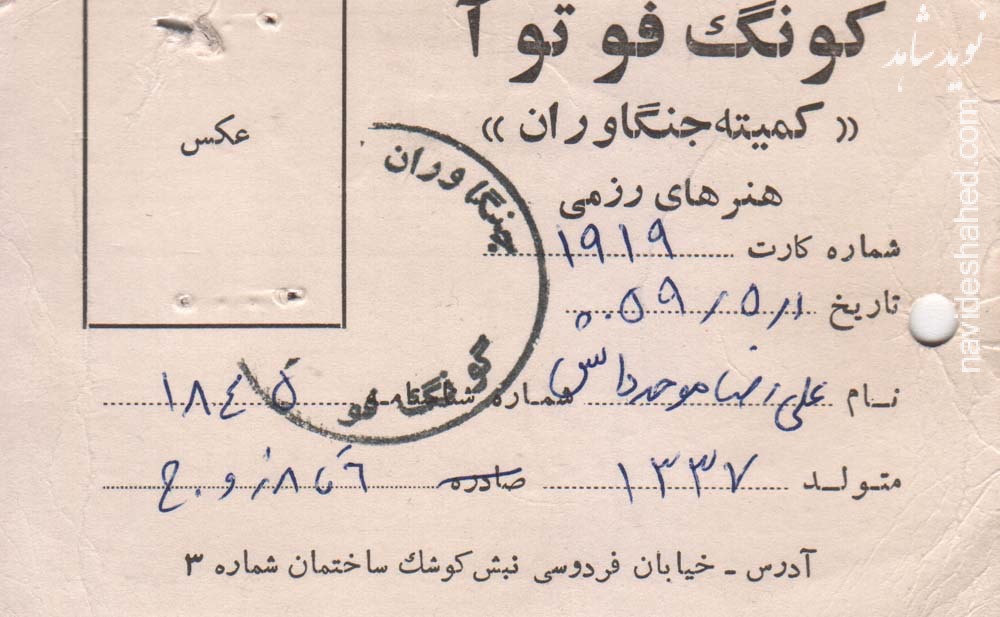 کونگ فو تو آ
« کمیته جنگاوران »
هنرهای رزمی
عکس
شماره کارت ۱۹۱۹
تاریخ ۵۹/۵/۱
نام علیرضا موحد دانش شماره شناسنامه ۱۸۴۵
متولد ۱۳۳۷ صادره ۶ تا ۸ زوج
آدرس - خیابان فردوسی نبش کوشك ساختمان شماره ۳
جنگاوران
کونگ فو
نوید شاهد
navideshahed.com